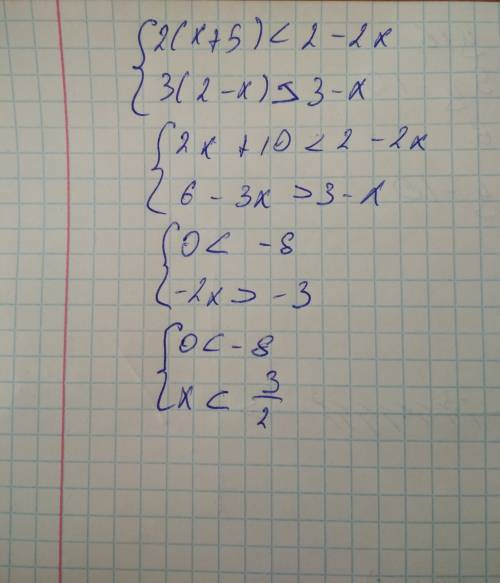 { 2(x+5) < 2 - 2x
3(2-x) > 3-x
{ 2x + 10 < 2 - 2x
6 - 3x > 3 - x
{ 0 < -8
-2x > -3
{ 0 < -8
x < 3/2